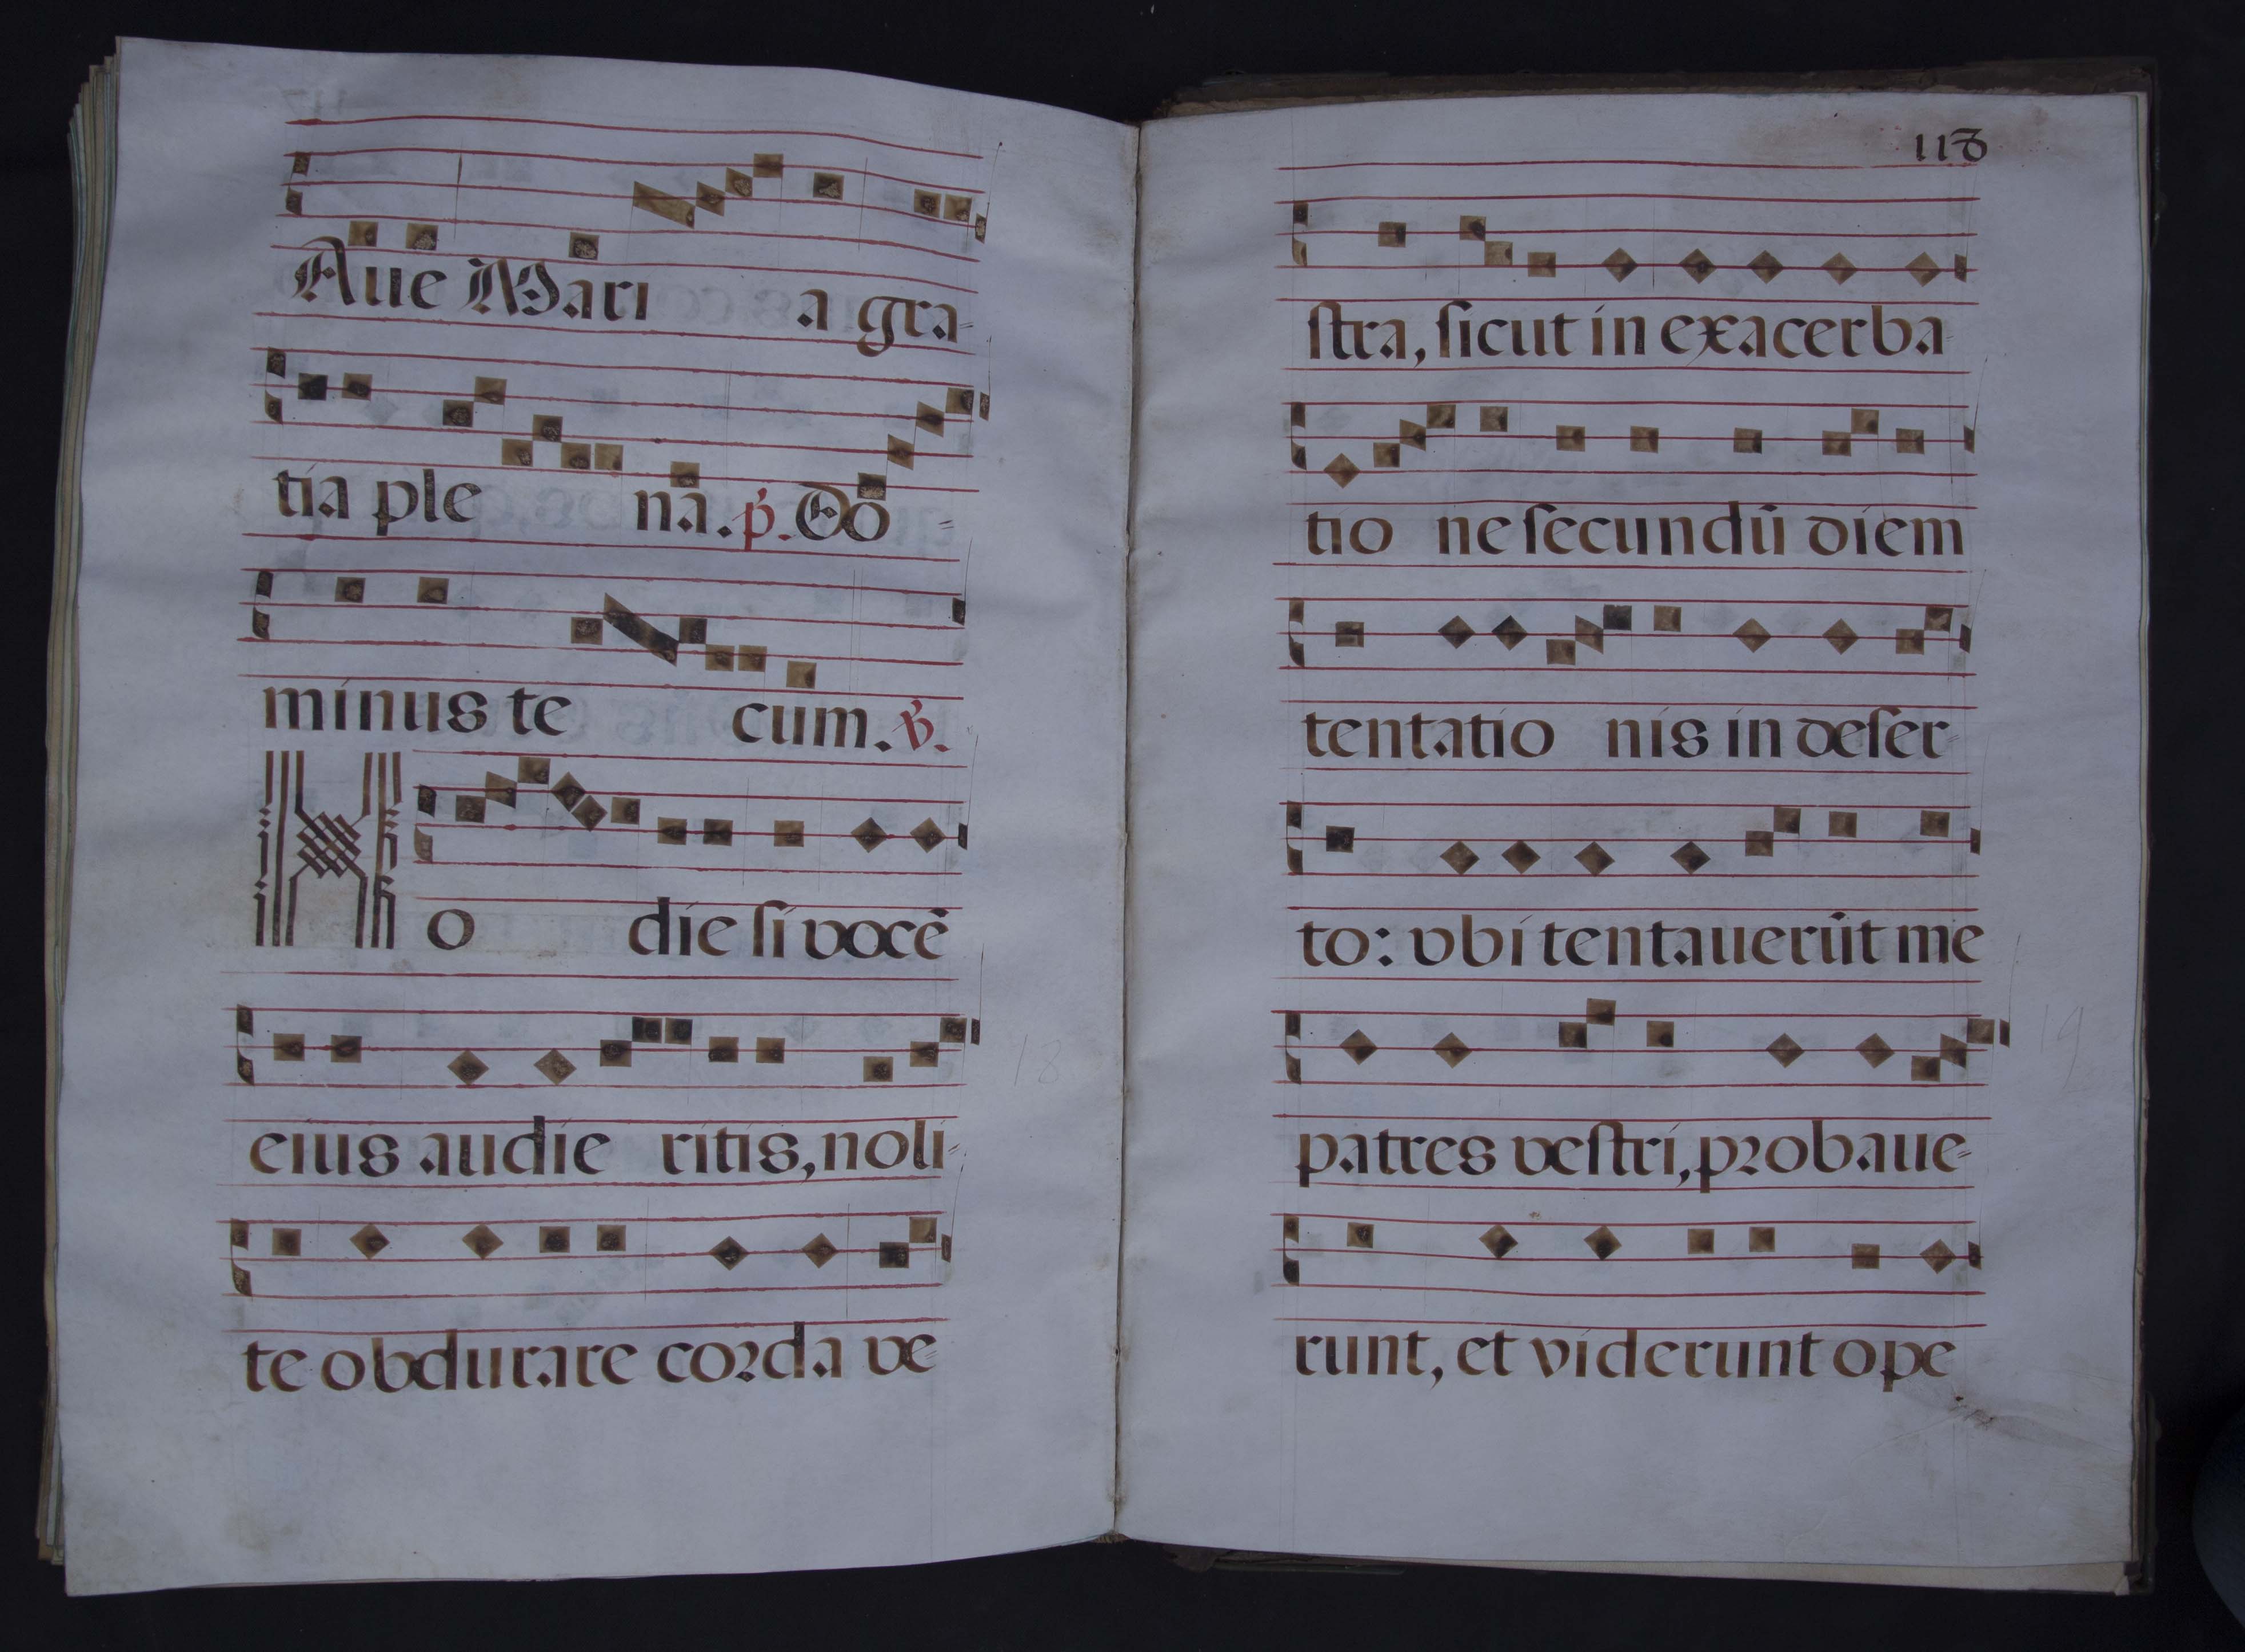 Aue Mari a gra-
tia ple na. p. Do-
minus te cum. v.
Ho die si vocē
eius audie ritis, noli-
te obdurare corda ve-
118
stra, sicut in exacerba-
tio ne secundū diem
tentatio nis in deser-
to: vbi tentauerūt me
patres vestri, probaue-
runt, et viderunt ope-
18
19